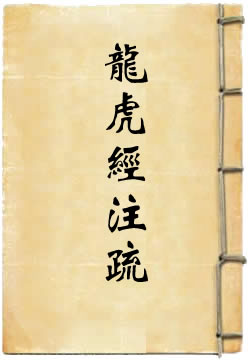 龍虎經注疏